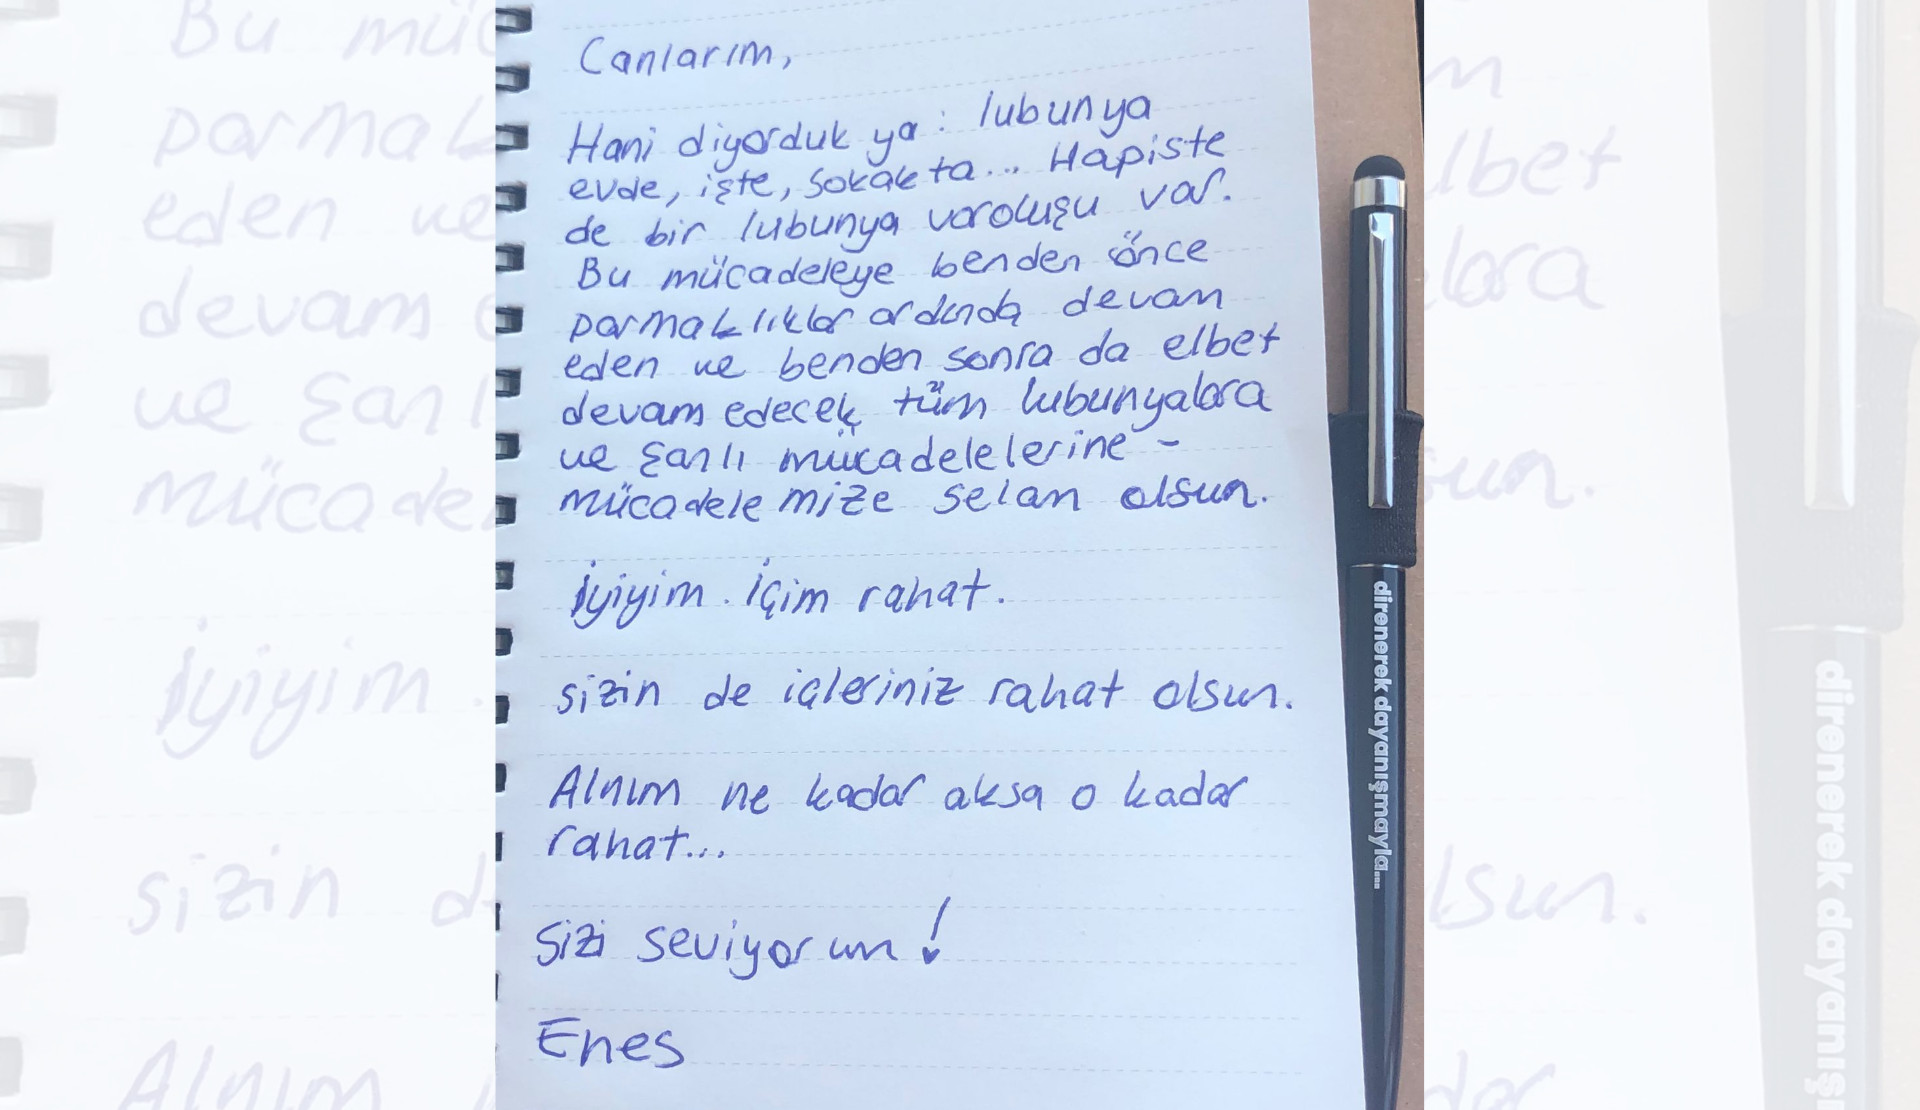 Canlarım,
Hani diyorduk ya: lubunya
evde, işte, sokakta... Hapiste
de bir lubunya varoluşu var.
Bu mücadeleye benden önce
parmaklıklar ardında devam
eden ve benden sonra da elbet
devam edecek tüm lubunyalara
ve şanlı mücadelelerine -
mücadelemize selam olsun.
İyiyim. İçim rahat.
sizin de içleriniz rahat olsun.
Alnım ne kadar aksa o kadar
rahat...
Sizi seviyorum!
Enes
direnerek dayanışmayla...